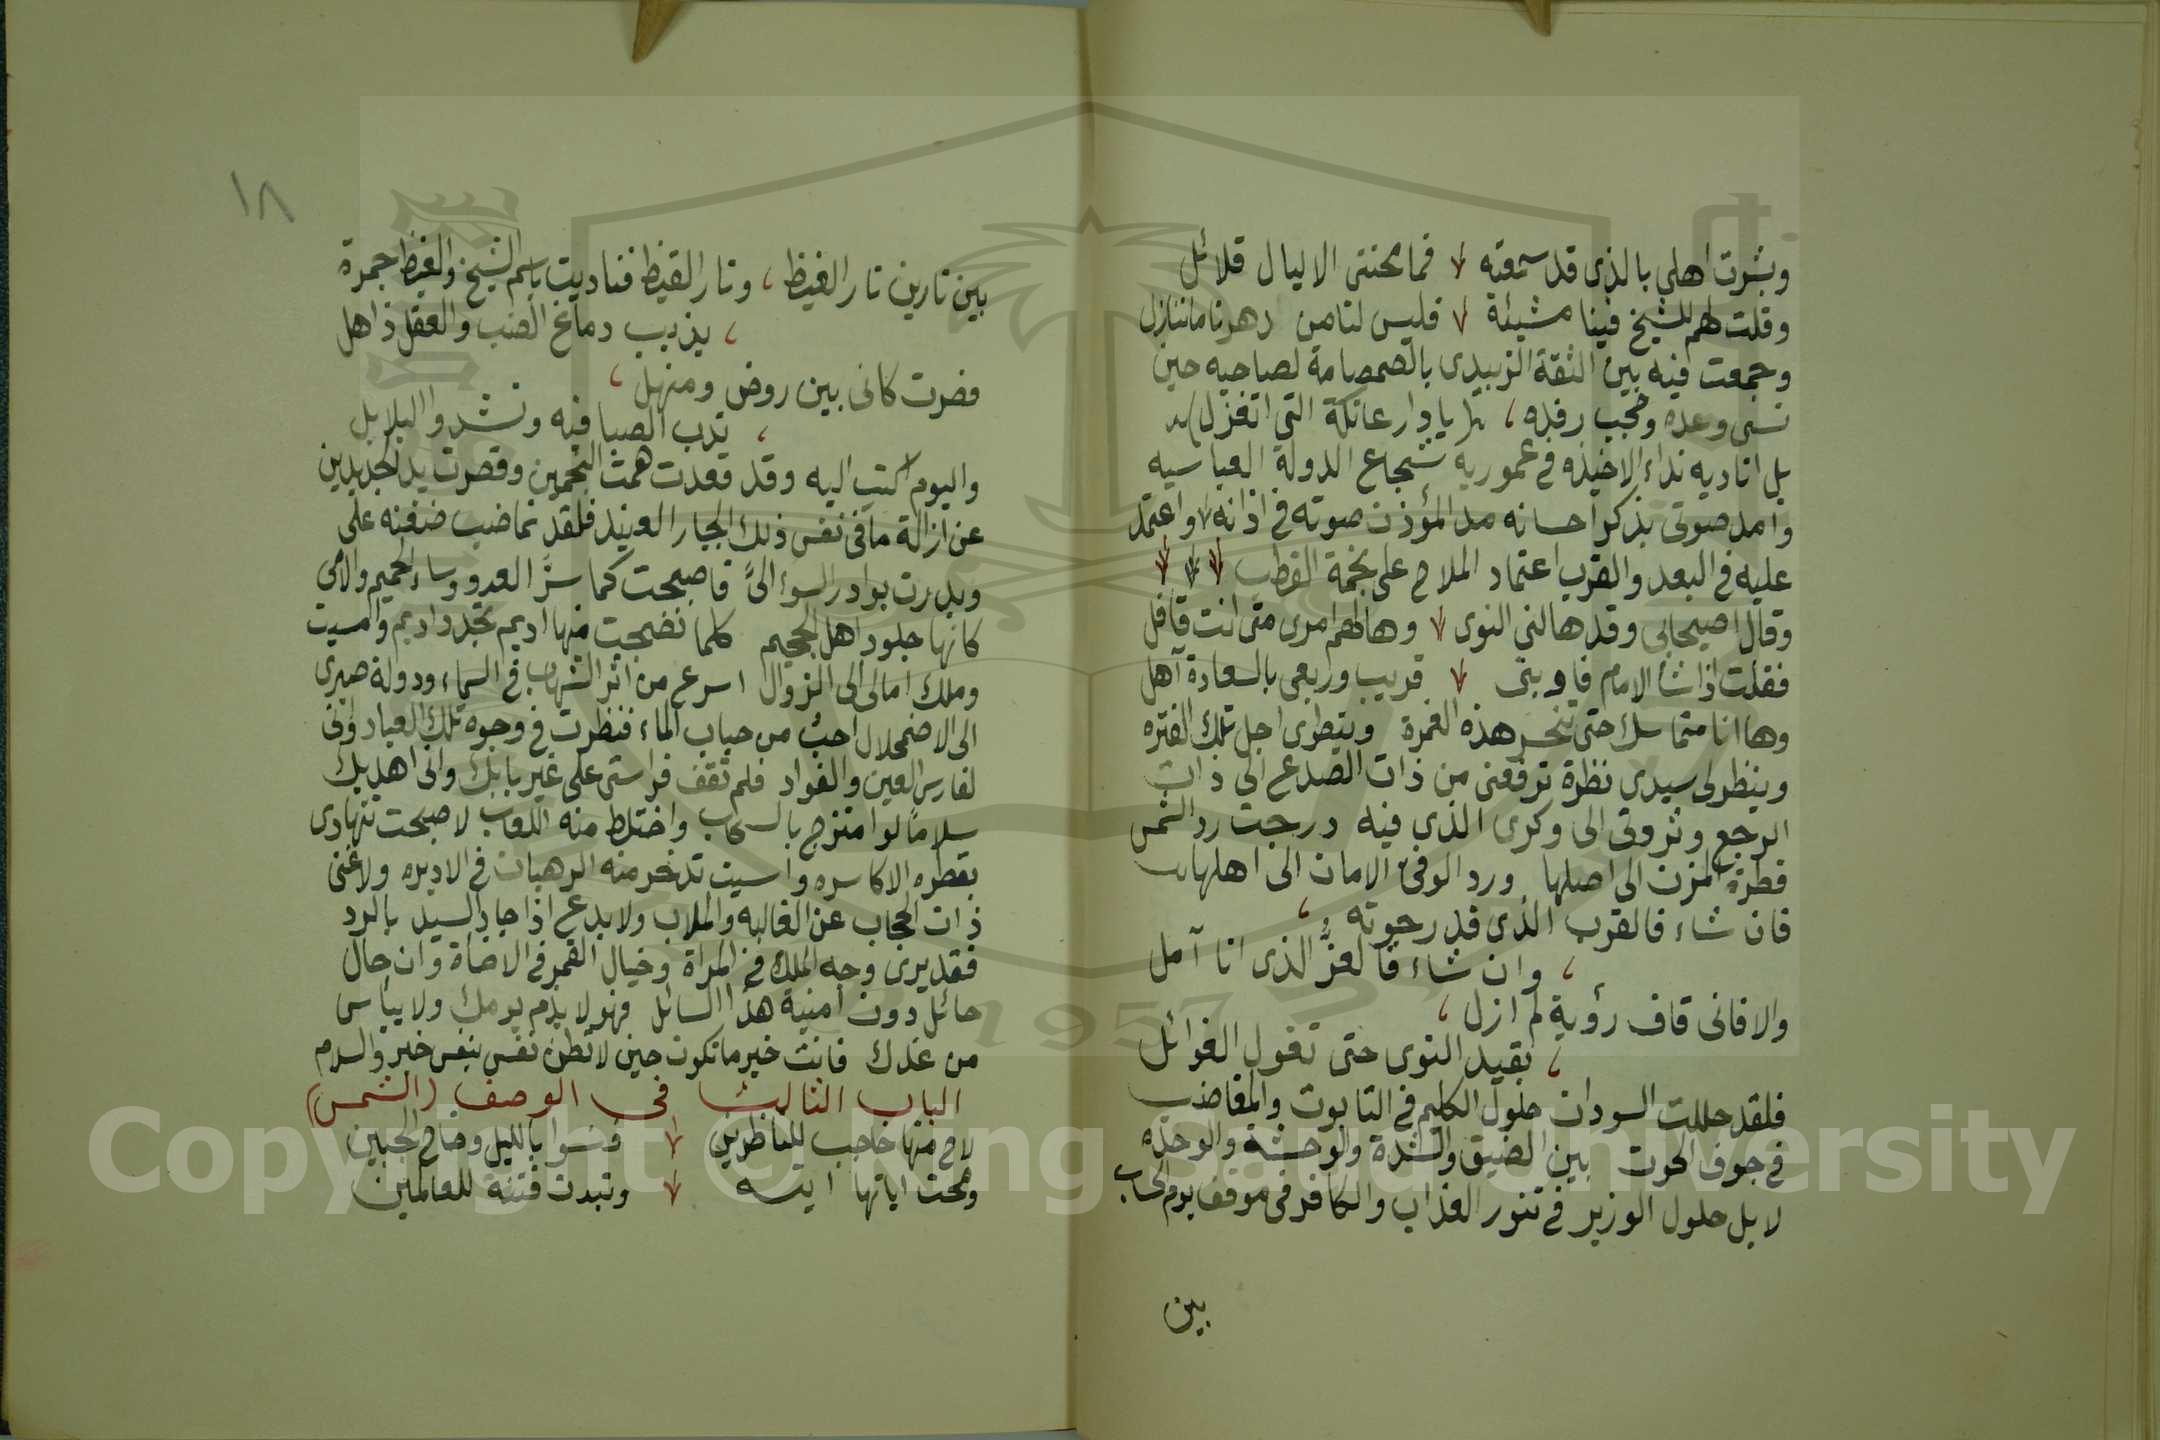 وبشرت اهلي بالذى قد سمعته فما محنتى الا ليال قلائل
وقلت لهم للشيخ فينا مشيئة فليس لنا من دهرنا ما ننازل
وجمعت فيه بين الثقة الزبيدى بالصمصامة لصاحبه حين
نسى وعده وحجب رفده يا دار عاتكة التى اتغزل
بل اناديه نداء الاخيذه فى عمورية شجاع الدولة العباسيه
وامد صوتى بذكر احسانه مد المؤذن صوته فى اذانه واعتمد
عليه فى البعد والقرب اعتماد الملاح على نجمة القطب
وقال اصيحابى وقد هالنى النوى وهالهم امرى متى انت قافل
فقلت اذا شا الامام فاوبتى قريب وربعى بالسعادة آهل
وها انا متماسك حتى تنحسر هذه الغمرة وينطوى اجل تلك الفتره
وينظر لى سيدى نظرة ترفعنى من ذات الصدع الى ذات
الرجع وتردنى الى وكرى الذى فيه درجت رد الشمس
قطرة المزن الى اصلها ورد الوفى الامانات الى اهلها
فان شاء فالقرب الذى قد رجوته
وان شاء فالعزُّ الذى انا آمل
والا فانى قاف رؤبة لم ازل
بقيد النوى حتى تغول الغوائل
فلقد حللت السودان حلول الكليم فى التابوت والمغاضب
فى جوف الحوت بين الضيق والشدة والوحشة والوحده
لا بل حلول الوزير فى تنور العذاب والكافر فى موقف يوم الحساب
بين
١٨
بين نارين نار الغيظ ونار القيظ فناديت باسم الشيخ والغيظ جمرة
يذيب دماغ الضب والعقل ذاهل
فصرت كانى بين روض ومنهل
تدب الصبا فيه وتشدوا البلابل
واليوم اكتب اليه وقد قعدت همت النجمين وقصرت يد الجديدين
عن ازالة ما فى نفس ذلك الجبار العنيد فلقد نما ضب ضغنه على
وبدرت بوادر السوء الىّ فاصبحت كما سرّ العدو وساء الحميم والامى
كانها جلود اهل الجحيم كلما نضجت منها اديم تجدد اديم وامسيت
وملك امالى الى الزوال اسرع من اثر الشهاب فى السماء ودولة صبرى
الى الاضمحلال احث من حباب الماء فنظرت فى وجوه تلك العباد وانى
لفارس العين والفواد فلم تقف فراستى على غير بابك وانى اهديك
سلاما لو امتزج بالسحاب واختلط منه اللعاب لاصبحت تتهادى
بقطره الاكاسره وامسيت تدخر منه الرهبان فى الاديره ولاغنى
ذات الحجاب عن الغاليه والملاب ولا بدع اذا جاد السيد بالرد
فقد يرى وجه الملك فى المراة وخيال القمر فى الاضاة وان حال
حائل دون امنية هذا السائل فهو لا يذم يومك ولا ييأس
من غدك فانت خير ما تكون حين لا تظن نفس بنفس خير والسلام
الباب الثالث فى الوصف (الشمس)
لاح منها حاجب للناظرين فنسوا بالليل وضاح الجبين
ومحت اياتها ايته وتبدت فتنة للعالمين
Copyright © King Saud University
1957